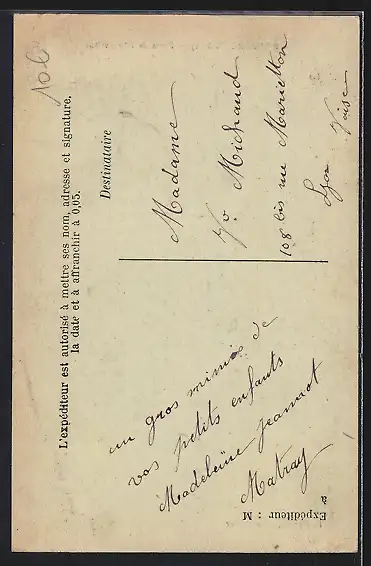 10 6
L'expéditeur est autorisé à mettre ses nom, adresse et signature,
la date et à affranchir à 0,05.
Destinataire
Madame
Vo Michaud
108 bis rue Marietton
Lyon
Vaise
un gros mimis de
vos petits enfants
Madeleine Jeannot
Matray
Expéditeur : M
à